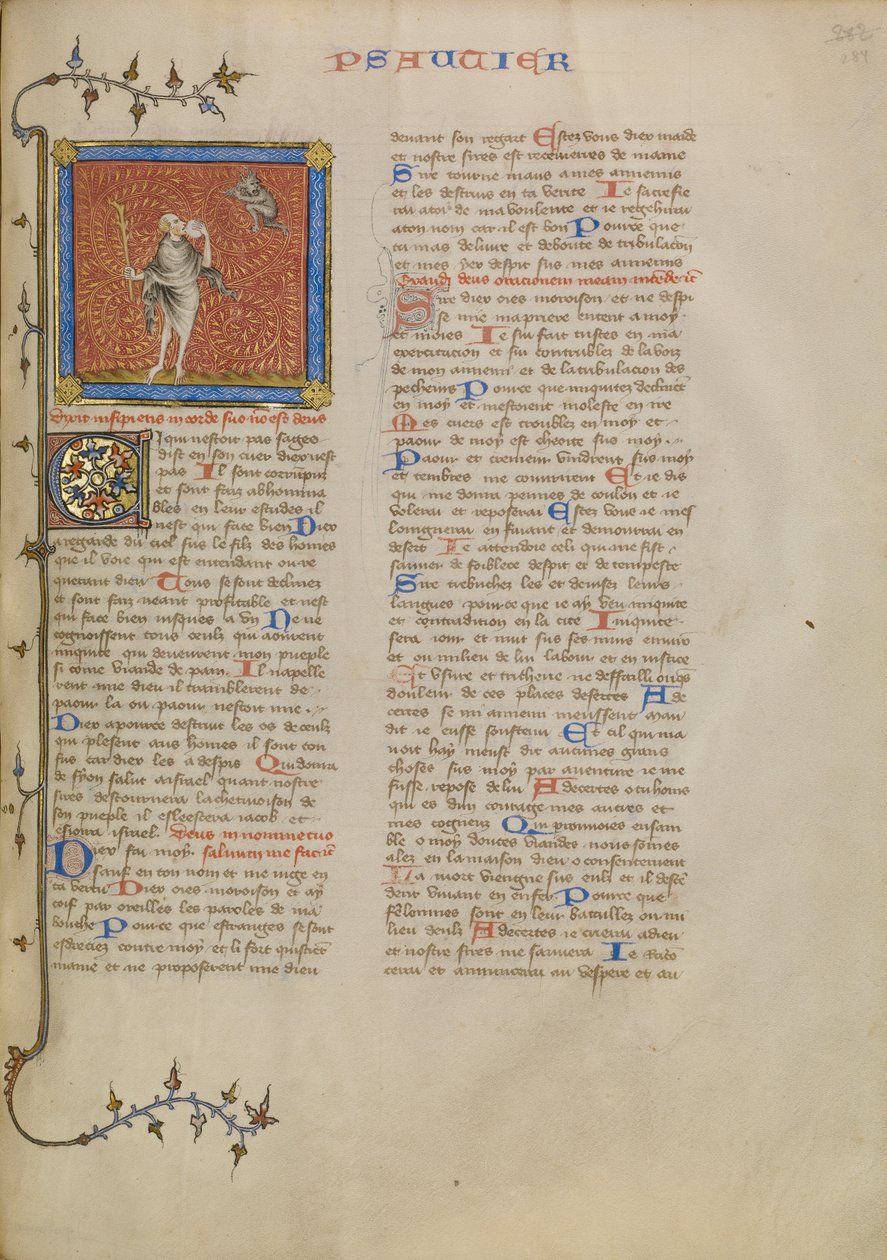 PSAUTIER
282
284
Dixit insipiens in corde suo non est deus
Cil qui nestoit pas sages
dist en son cuer diex nest
pas Il sont corrumpuz
et sont faiz abhomina
bles en leur estudes il
nest qui face bien Diex
a regarde du ciel sus le filz des homes
que il voie qui est entendant ou re
querant dieu Tous se sont declinez
et sont faiz neant profitable et nest
qui face bien iusques a vn Ne ne
cognoissent tous ceulz qui aourent
iniquite qui deueurent mon pueple
si come viande de pain Il napelle
rent mie dieu il tramblerent de
paour la ou paour nestoit mie
Diex a pource destruit les os de ceulz
qui plesent aus homes il sont con
fus car diex les a despis Qui donra
de syon salut a israel quant nostre
sires destournera la chetiuoison de
son pueple il esleescera iacob et
esioira israel. Deus in nomine tuo
Diex fai moy saluum me fac
sauf en ton nom et me iuge en
ta vertu Diex oies moroison et ay
coif par oreilles les paroles de ma
bouche Pource que estranges se sont
esdreciez contre moy et li fort quistrent
mame et ne proposerent mie dieu
deuant son regart Estez vous diex maide
et nostre sires est receuerres de mame
Sire tourne maus a mes annemis
et les destruis en ta verite Ie sacrefie
rai a toi de ma voulente et ie regehirai
a ton nom car il est bon Pource que
tu mas deliure et deboute de tribulacion
et mes yex despit sus mes annemis
Exaudi deus orationem meam
Sire diex oies moroison et ne despi
se mie ma priere entent a moy
et moies Ie sui fait tristes en ma
exercitacion et sui contriblez de la voiz
de mon annemi et de la tribulacion des
pecheurs Pource que iniquitez declinerent
en moy et mestoient moleste en ire
Mes cuers est troublez en moy et
paour de mort est cheoite sus moy
Paour et cremeur vindrent sus moy
et tenebres me couurirent Et ie dis
qui me donra pennes de coulon et ie
volerai et reposerai Estez vous ie mes
loingnerai en fuiant et demourrai en
desert Ie attendoie celi qui me fist
sauuer de foiblece despit et de tempeste
Sire trebuchez les et deuisez leurs
langues pource que ie ay veu iniquite
et contradition en la cite Iniquite
sera iour et nuit sus ses murs enuiro
et ou milieu de lui labour et en iustice
Et vsure et tricherie ne deffailli onques
douleur de ces places desertes A de
certes se mi annemi meussent mau
dit ie eusse soustenu Et cil qui ma
uoit hay meust dit aucunes grans
choses sus moy par auenture ie me
fusse repose de lui Adecertes o tu homs
qui es dun courage mes autres et
mes cogneuz Qui prennoies ensam
ble o moy douces viandes nous somes
alez en la maison dieu o consentement
La mort viengne sus eulz et il descen
dent viuant en enfer Pource que
felonnies sont en leur batullez ou mi
lieu deulz Adecertes ie crierai a dieu
et nostre sires me sauuera Ie racon
terai et annuncerai au vespere et au